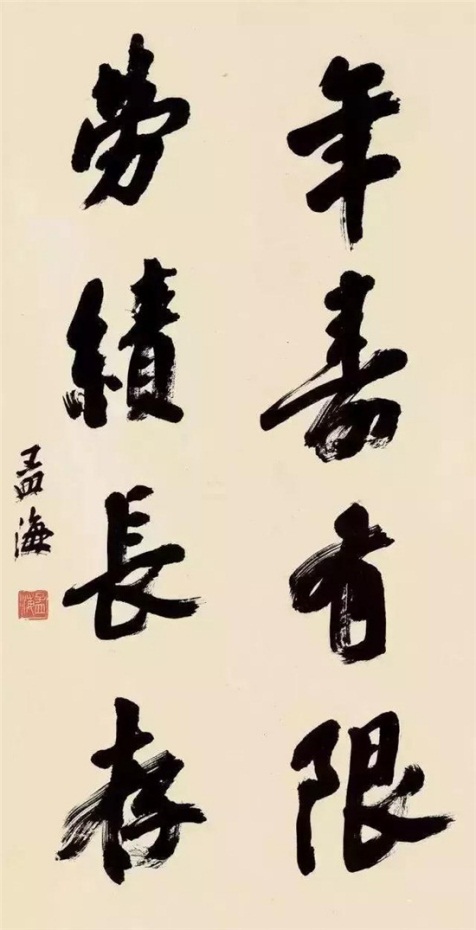 年壽有限
勞績長存
孟海